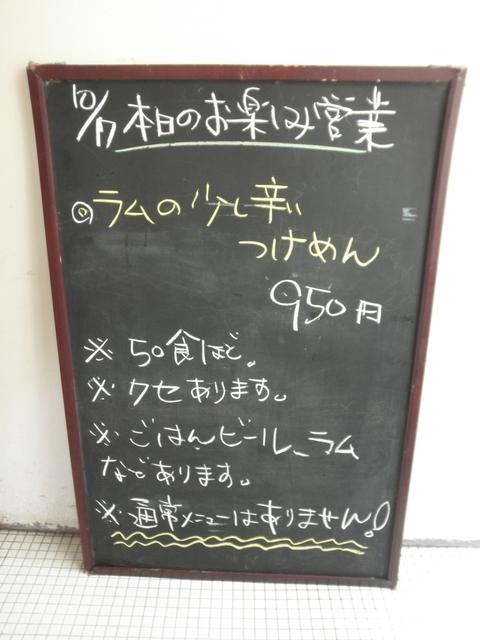 10/17 本日のお楽しみ営業
◎ラムの少し辛い
つけめん
950円
※50食ほど。
※クセあります。
※ごはんビール、ラム
などあります。
※通常メニューはありません!